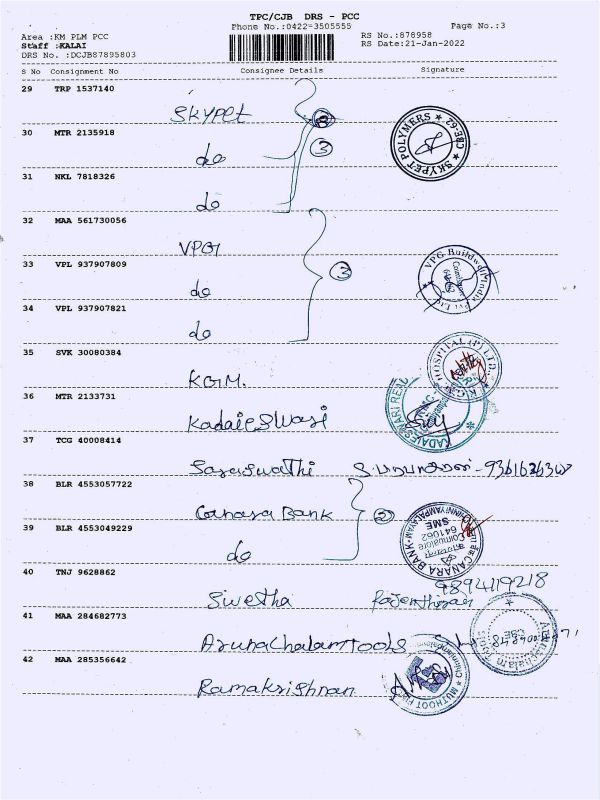 TPC/CJB DRS - PCC
Phone No.:0422=3505555 Page No.:3
Area :KM PLM PCC RS No.:878958
Staff :KALAI RS Date:21-Jan-2022
DRS No. :DCJB87895803
S No Consignment No Consignee Details Signature
29 TRP 1537140
SKYPET
30 MTR 2135918
do 3
SKYPET POLYMERS * CBE-62 *
31 NKL 7818326
do
32 MAA 561730056
VPG
33 VPL 937907809
do 3
34 VPL 937907821
do
35 SVK 30080384
K.G.M. HOSPITAL (P) LTD.
36 MTR 2133731
Kadaieswari
KADAIESWARI
37 TCG 40008414
Saraswathi
38 BLR 4553057722
Canara Bank 2
CANARA BANK
641062
SME
39 BLR 4553049229
do
40 TNJ 9628862
9894119218
Swetha
41 MAA 284682773
Arunachalam Tools
42 MAA 285356642
Ramakrishnan